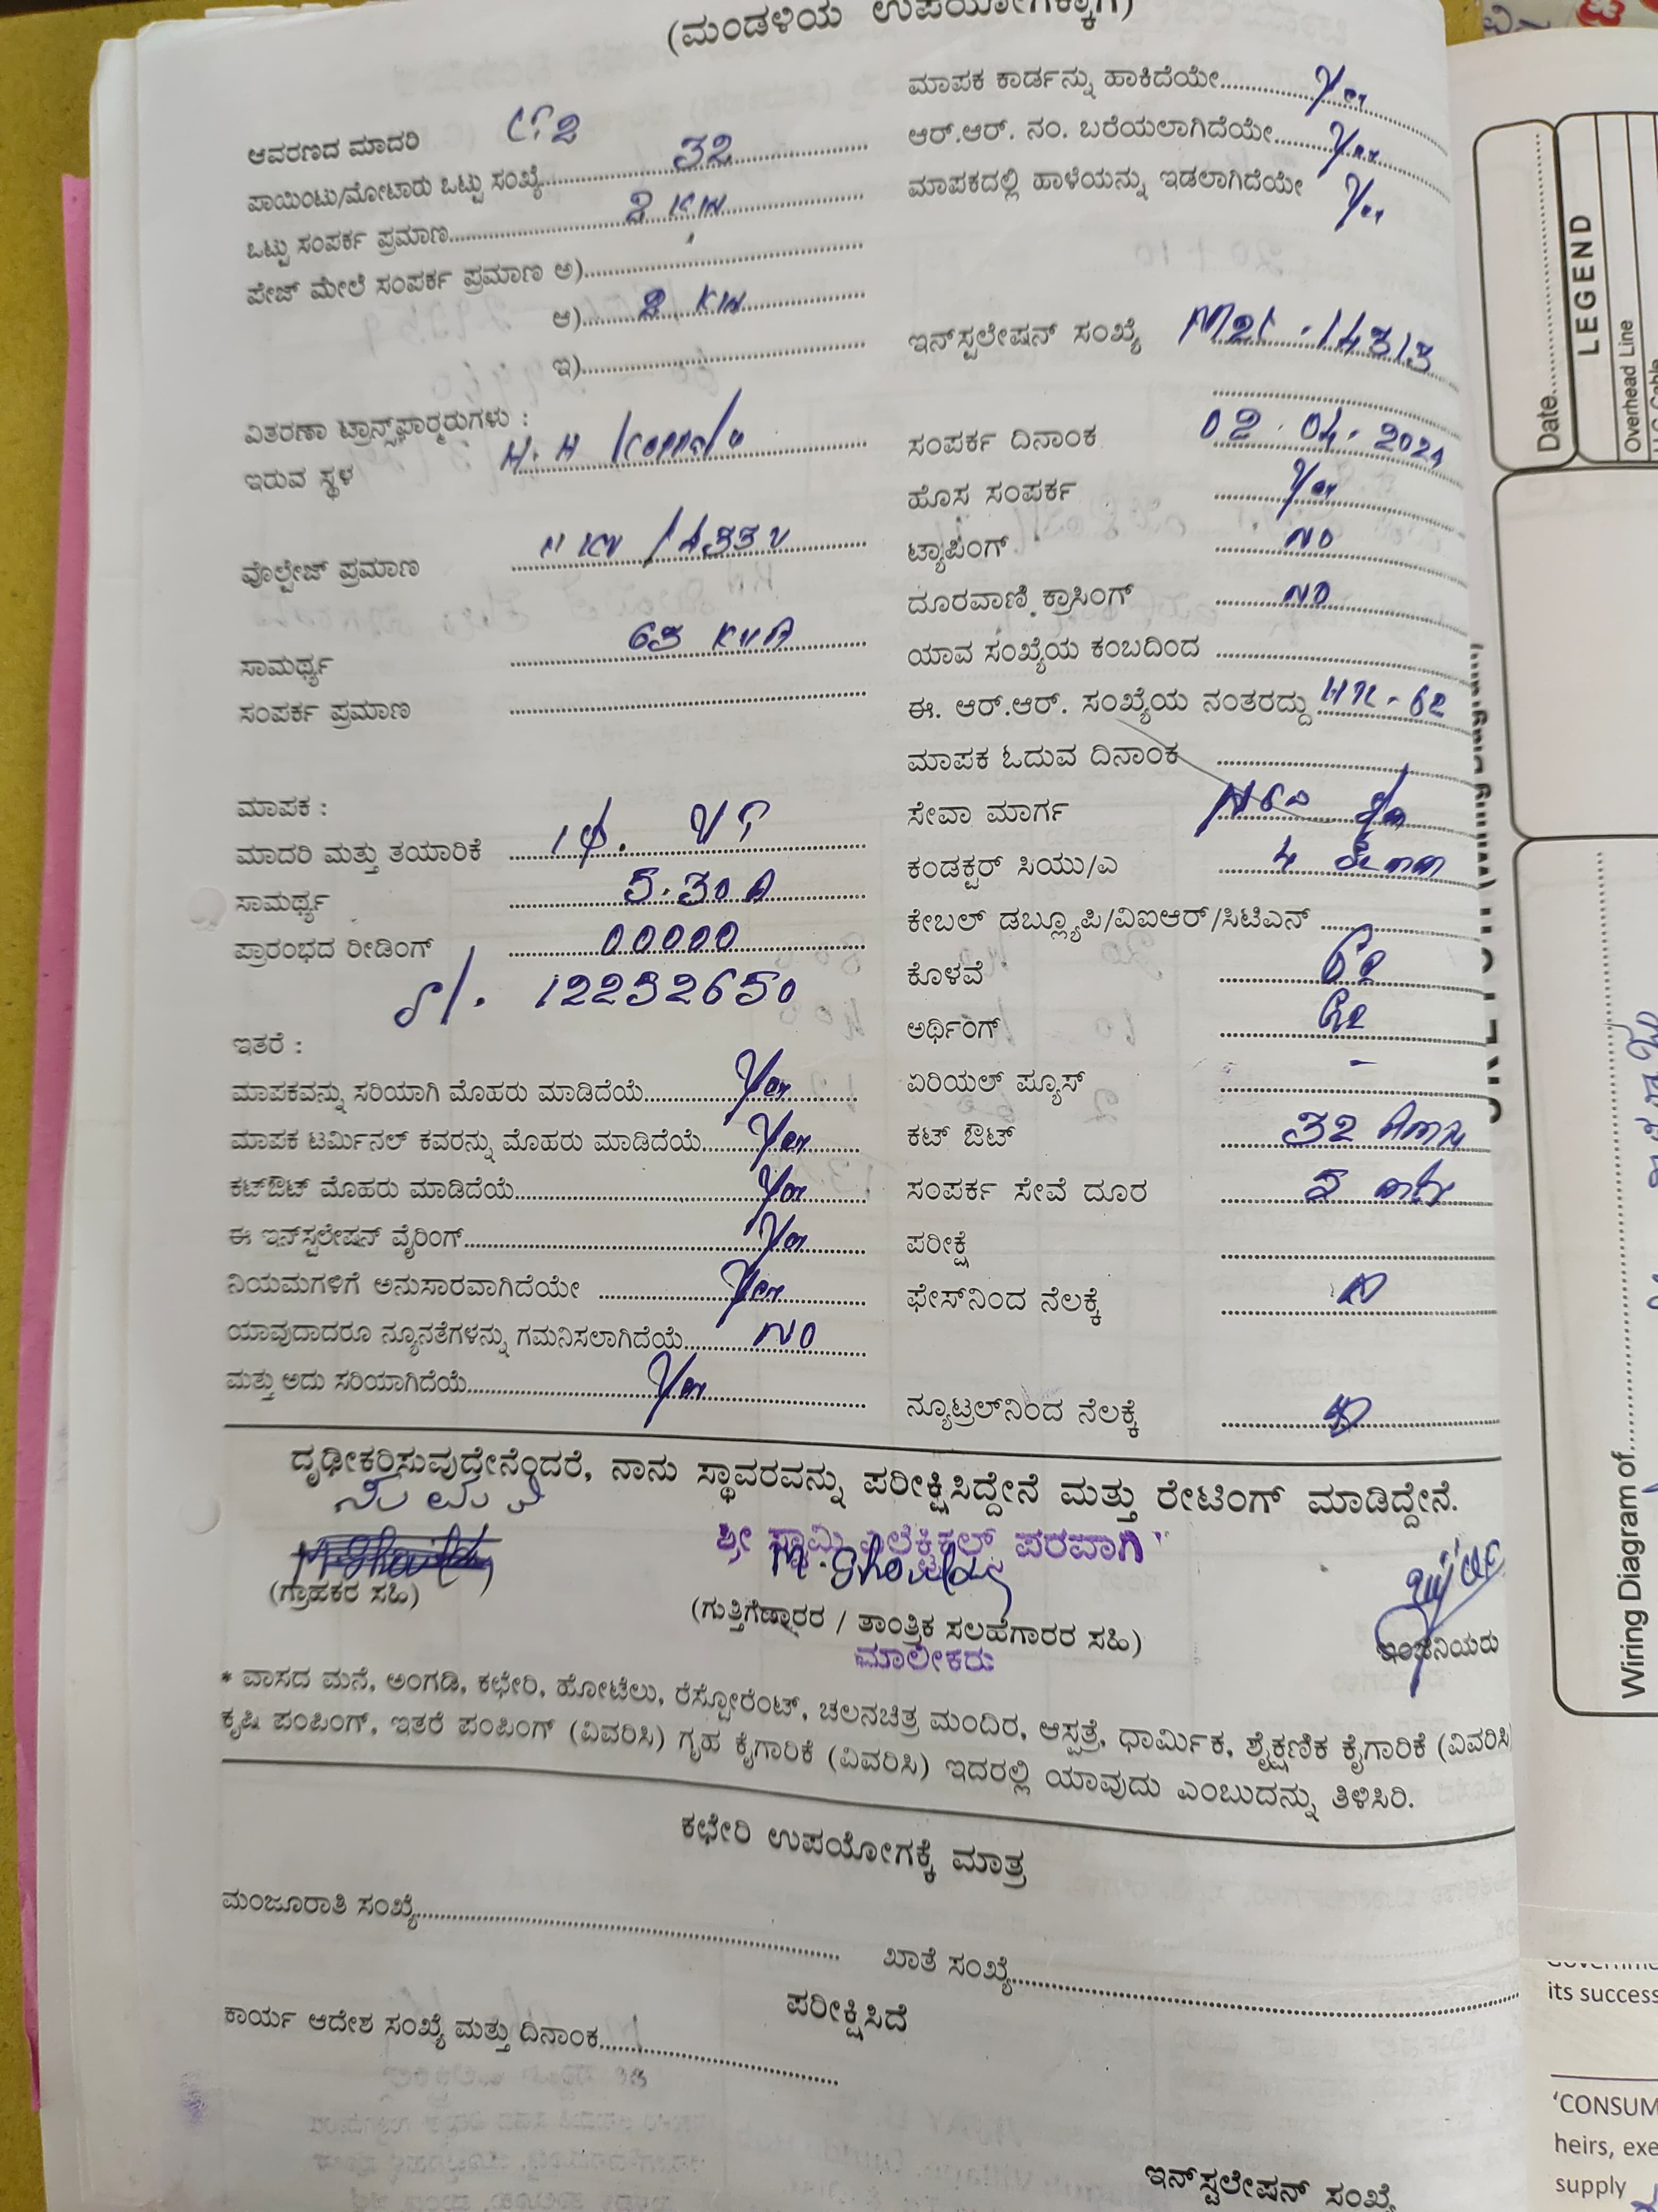 (ಮಂಡಳಿಯ ಉಪಯೋಗಕ್ಕಾಗಿ)
ಆವರಣದ ಮಾದರಿ
ಪಾಯಿಂಟು/ಮೋಟಾರು ಒಟ್ಟು ಸಂಖ್ಯೆ 32
ಒಟ್ಟು ಸಂಪರ್ಕ ಪ್ರಮಾಣ 2 KW
ಪೇಜ್ ಮೇಲೆ ಸಂಪರ್ಕ ಪ್ರಮಾಣ ಅ)
ಆ) 2 KW
ಇ)
ವಿತರಣಾ ಟ್ರಾನ್ಸ್‌ಫಾರ್ಮರುಗಳು :
ಇರುವ ಸ್ಥಳ H.H Koppalu
ವೋಲ್ಟೇಜ್ ಪ್ರಮಾಣ 11 KV / 433 V
ಸಾಮರ್ಥ್ಯ 63 KVA
ಸಂಪರ್ಕ ಪ್ರಮಾಣ
ಮಾಪಕ :
ಮಾದರಿ ಮತ್ತು ತಯಾರಿಕೆ 1φ.
ಸಾಮರ್ಥ್ಯ 5-30 A
ಪ್ರಾರಂಭದ ರೀಡಿಂಗ್ 00000
Sl. 12232650
ಇತರೆ :
ಮಾಪಕವನ್ನು ಸರಿಯಾಗಿ ಮೊಹರು ಮಾಡಿದೆಯೆ Yes
ಮಾಪಕ ಟರ್ಮಿನಲ್ ಕವರನ್ನು ಮೊಹರು ಮಾಡಿದೆಯೆ Yes
ಕಟ್‌ಔಟ್ ಮೊಹರು ಮಾಡಿದೆಯೆ Yes
ಈ ಇನ್‌ಸ್ಟಲೇಷನ್ ವೈರಿಂಗ್ Yes
ನಿಯಮಗಳಿಗೆ ಅನುಸಾರವಾಗಿದೆಯೇ Yes
ಯಾವುದಾದರೂ ನ್ಯೂನತೆಗಳನ್ನು ಗಮನಿಸಲಾಗಿದೆಯೆ NO
ಮತ್ತು ಅದು ಸರಿಯಾಗಿದೆಯೆ Yes
ಮಾಪಕ ಕಾರ್ಡನ್ನು ಹಾಕಿದೆಯೇ Yes
ಆರ್.ಆರ್. ನಂ. ಬರೆಯಲಾಗಿದೆಯೇ Yes
ಮಾಪಕದಲ್ಲಿ ಹಾಳೆಯನ್ನು ಇಡಲಾಗಿದೆಯೇ Yes
ಇನ್‌ಸ್ಟಲೇಷನ್ ಸಂಖ್ಯೆ
ಸಂಪರ್ಕ ದಿನಾಂಕ 02.04.2021
ಹೊಸ ಸಂಪರ್ಕ Yes
ಟ್ಯಾಪಿಂಗ್ NO
ದೂರವಾಣಿ ಕ್ರಾಸಿಂಗ್ NO
ಯಾವ ಸಂಖ್ಯೆಯ ಕಂಬದಿಂದ
ಈ. ಆರ್.ಆರ್. ಸಂಖ್ಯೆಯ ನಂತರದ್ದು
ಮಾಪಕ ಓದುವ ದಿನಾಂಕ
ಸೇವಾ ಮಾರ್ಗ
ಕಂಡಕ್ಟರ್ ಸಿಯು/ಎ
ಕೇಬಲ್ ಡಬ್ಲ್ಯೂಪಿ/ವಿಐಆರ್/ಸಿಟಿಎನ್
ಕೊಳವೆ
ಅರ್ಥಿಂಗ್
ಏರಿಯಲ್ ಪ್ಯೂಸ್ -
ಕಟ್ ಔಟ್ 32 Amp
ಸಂಪರ್ಕ ಸೇವೆ ದೂರ 5 mtr
ಪರೀಕ್ಷೆ
ಫೇಸ್‌ನಿಂದ ನೆಲಕ್ಕೆ
ನ್ಯೂಟ್ರಲ್‌ನಿಂದ ನೆಲಕ್ಕೆ
ದೃಢೀಕರಿಸುವುದೇನೆಂದರೆ, ನಾನು ಸ್ಥಾವರವನ್ನು ಪರೀಕ್ಷಿಸಿದ್ದೇನೆ ಮತ್ತು ರೇಟಿಂಗ್ ಮಾಡಿದ್ದೇನೆ.
ಶ್ರೀ ಸ್ವಾಮಿ ಎಲೆಕ್ಟ್ರಿಕಲ್ಸ್ ಪರವಾಗಿ
(ಗ್ರಾಹಕರ ಸಹಿ)
(ಗುತ್ತಿಗೆದಾರರ / ತಾಂತ್ರಿಕ ಸಲಹೆಗಾರರ ಸಹಿ)
ಇಂಜಿನಿಯರು
ಮಾಲೀಕರು
* ವಾಸದ ಮನೆ, ಅಂಗಡಿ, ಕಛೇರಿ, ಹೋಟೆಲು, ರೆಸ್ಟೋರೆಂಟ್, ಚಲನಚಿತ್ರ ಮಂದಿರ, ಆಸ್ಪತ್ರೆ, ಧಾರ್ಮಿಕ, ಶೈಕ್ಷಣಿಕ ಕೈಗಾರಿಕೆ (ವಿವರಿಸಿ
ಕೃಷಿ ಪಂಪಿಂಗ್, ಇತರೆ ಪಂಪಿಂಗ್ (ವಿವರಿಸಿ) ಗೃಹ ಕೈಗಾರಿಕೆ (ವಿವರಿಸಿ) ಇದರಲ್ಲಿ ಯಾವುದು ಎಂಬುದನ್ನು ತಿಳಿಸಿರಿ.
ಕಛೇರಿ ಉಪಯೋಗಕ್ಕೆ ಮಾತ್ರ
ಮಂಜೂರಾತಿ ಸಂಖ್ಯೆ
ಖಾತೆ ಸಂಖ್ಯೆ
ಪರೀಕ್ಷಿಸಿದೆ
ಕಾರ್ಯ ಆದೇಶ ಸಂಖ್ಯೆ ಮತ್ತು ದಿನಾಂಕ
ಇನ್‌ಸ್ಟಲೇಷನ್ ಸಂಖ್ಯೆ
Date
LEGEND
Overhead Line
Wiring Diagram of
its success
'CONSUM
heirs, exe
supply